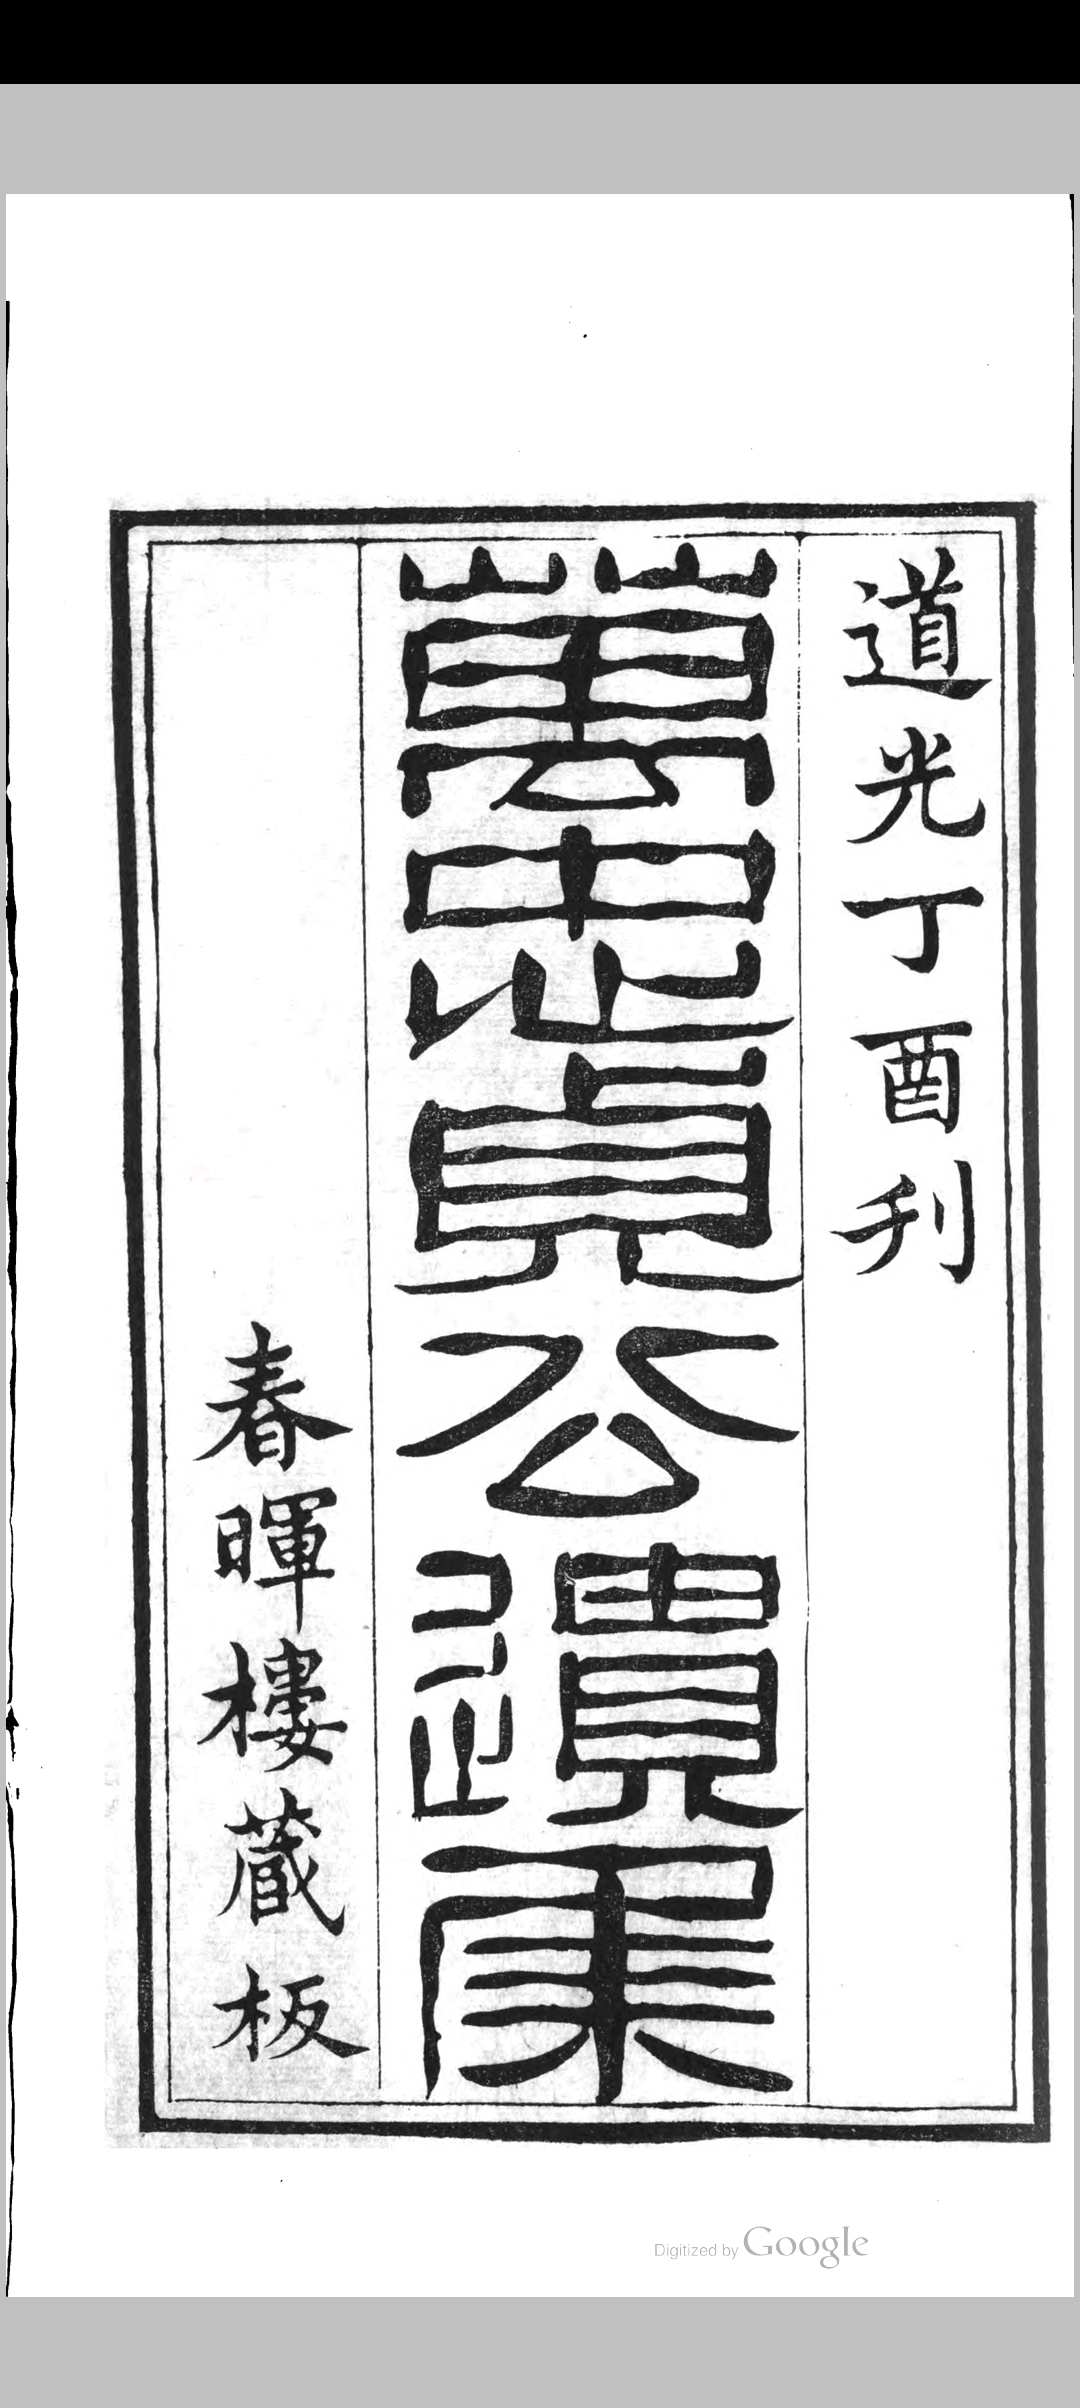 道光丁酉刋
黃忠貞公遺集
春暉樓藏板
Digitized by Google